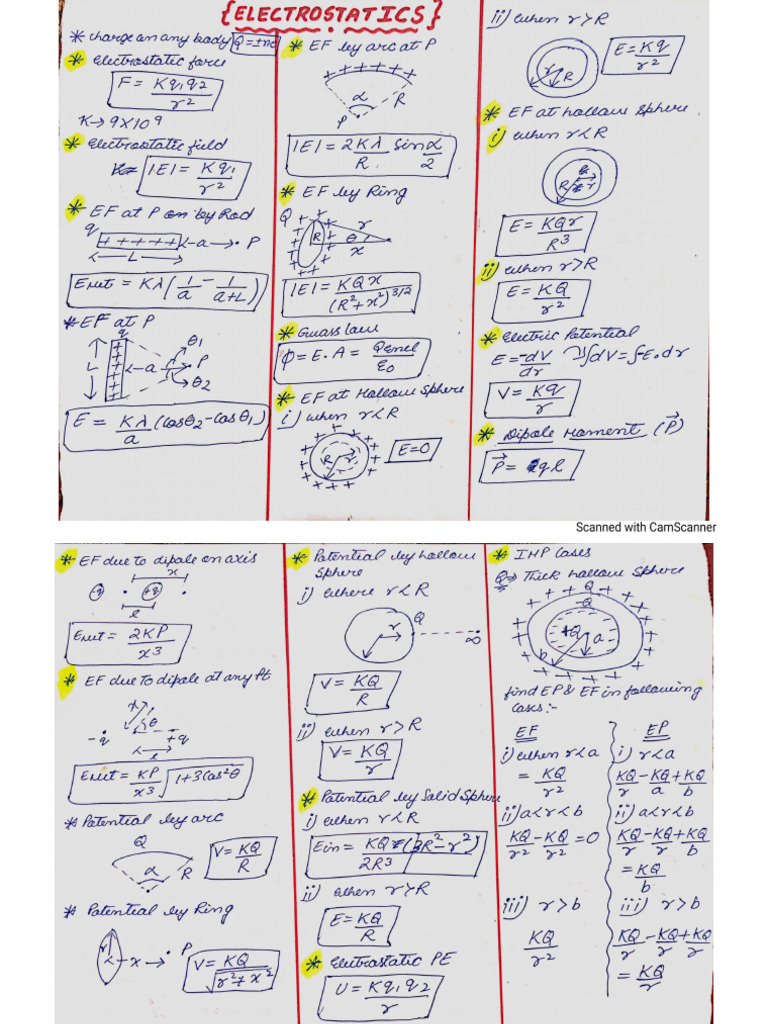 {ELECTROSTATICS}
* charge on any body Q=±ne
* Electrostatic force
F = Kq₁q₂/r²
K→ 9×10⁹
* Electrostatic field
|E| = Kq₁/r²
* EF at P on by Rod
q
+ + + + + ←a→ • P
← L →
Enet = Kλ(1/a - 1/a+L)
* EF at P
q
L
←a→ • P
θ1
θ2
E = Kλ/a (Cosθ2 - Cosθ1)
* EF by arc at P
+ + + + + + +
α
R
P
|E| = 2Kλ/R. Sin α/2
* EF by Ring
Q
R
r
θ
x
|E| = KQx/(R²+x²)^3/2
* Guass law
φ = E.A = Qencl/ε0
* EF at Hollow Sphere
i) when r<R
R r
E=0
ii) when r>R
r
R
E = Kq/r²
* EF at hollow Sphere
i) when r<R
R r
E = KQr/R³
ii) when r>R
E = KQ/r²
* Electric Potential
E = -dV/dr ⇒ ∫dV = ∫-E.dr
V = Kq/r
* Dipole Moment (P⃗)
P⃗ = ql
Scanned with CamScanner
* EF due to dipole on axis
x
-q +q •
l
Enet = 2KP/x³
* EF due to dipole at any pt
x
θ
-q +q
l
Enet = KP/x³ √1+3Cos²θ
* Potential by arc
Q
α R
V = KQ/R
* Potential by Ring
r
←x→ • P
V = KQ/√r²+x²
* Potential by hollow
Sphere
i) where r<R
Q
r
∞
V = KQ/R
ii) when r>R
V = KQ/r
* Potential by Solid Sphere
i) when r<R
Ein = KQ (3R²-r²)/2R³
ii) when r>R
E = KQ/R
* Electrostatic PE
U = Kq₁q₂/r
* IMP Cases
Q⇒ Thick hollow sphere
Q
-Q
+Q
a
b
find EP & EF in following
cases:-
EF EP
i) when r<a i) r<a
= KQ/r² KQ/r - KQ/a + KQ/b
ii) a<r<b ii) a<r<b
KQ/r² - KQ/r² = 0 KQ/r - KQ/r + KQ/b
= KQ/b
iii) r>b iii) r>b
KQ/r² KQ/r - KQ/r + KQ/r
= KQ/r